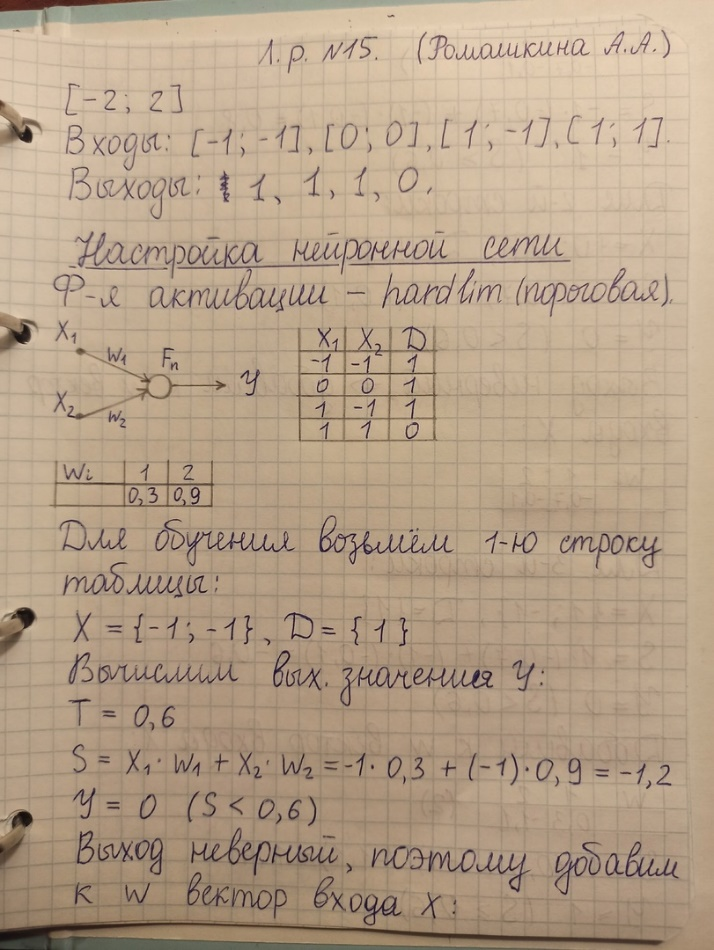 Л.р. №15. (Ромашкина А.А.)
[-2; 2]
Входы: [-1; -1], [0; 0], [1; -1], [1; 1].
Выходы: 1, 1, 1, 0.
Настройка нейронной сети
Ф-я активации – hardlim (пороговая).
X₁ W₁ Fn У
X₂ W₂
X₁ X₂ D
-1 -1 1
0 0 1
1 -1 1
1 1 0
Wi 1 2
0,3 0,9
Для обучения возьмём 1-ю строку
таблицы:
X = {-1; -1}, D = {1}
Вычислим вых. значения У:
T = 0,6
S = X₁· W₁ + X₂· W₂ = -1· 0,3 + (-1)·0,9 = -1,2
У = 0 (S < 0,6)
Выход неверный, поэтому добавим
к W вектор входа X: